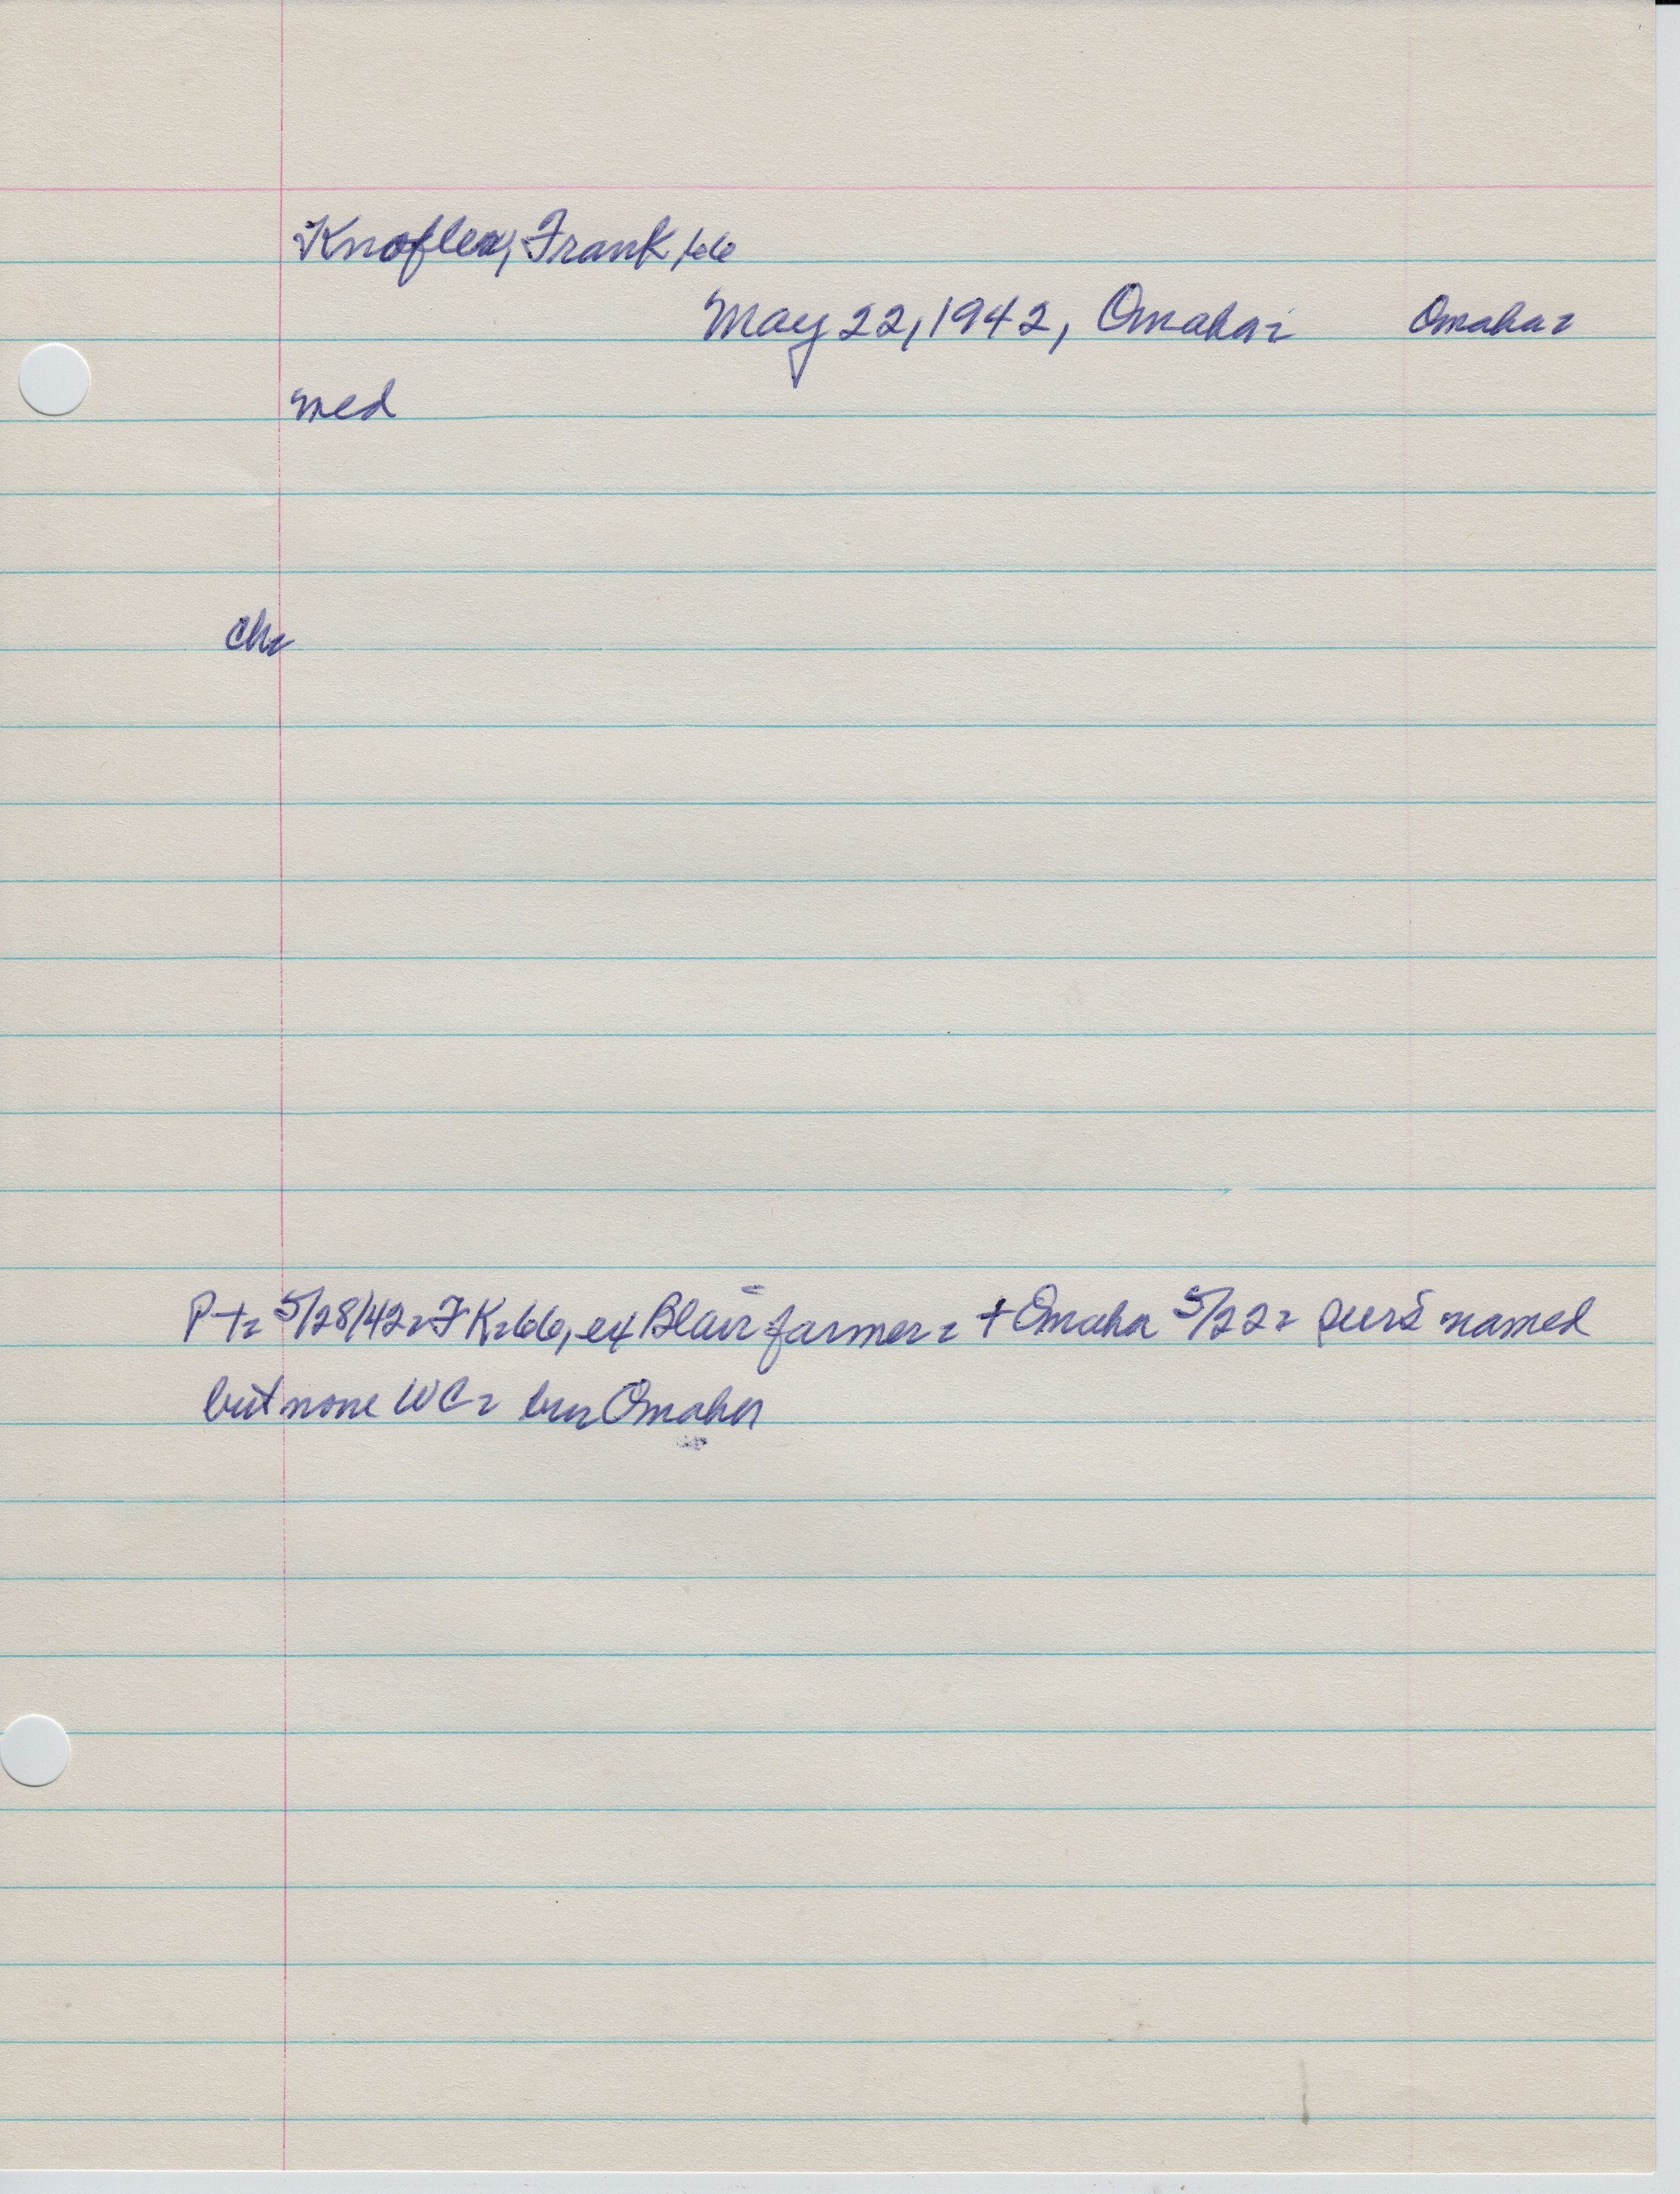 Knofler, Frank, 66
May 22, 1942, Omaha Omaha
med
Ch
P+ 5/28/42 FK 66, ex Blair farmer + Omaha 5/22 surs named
but none WC bur Omaha